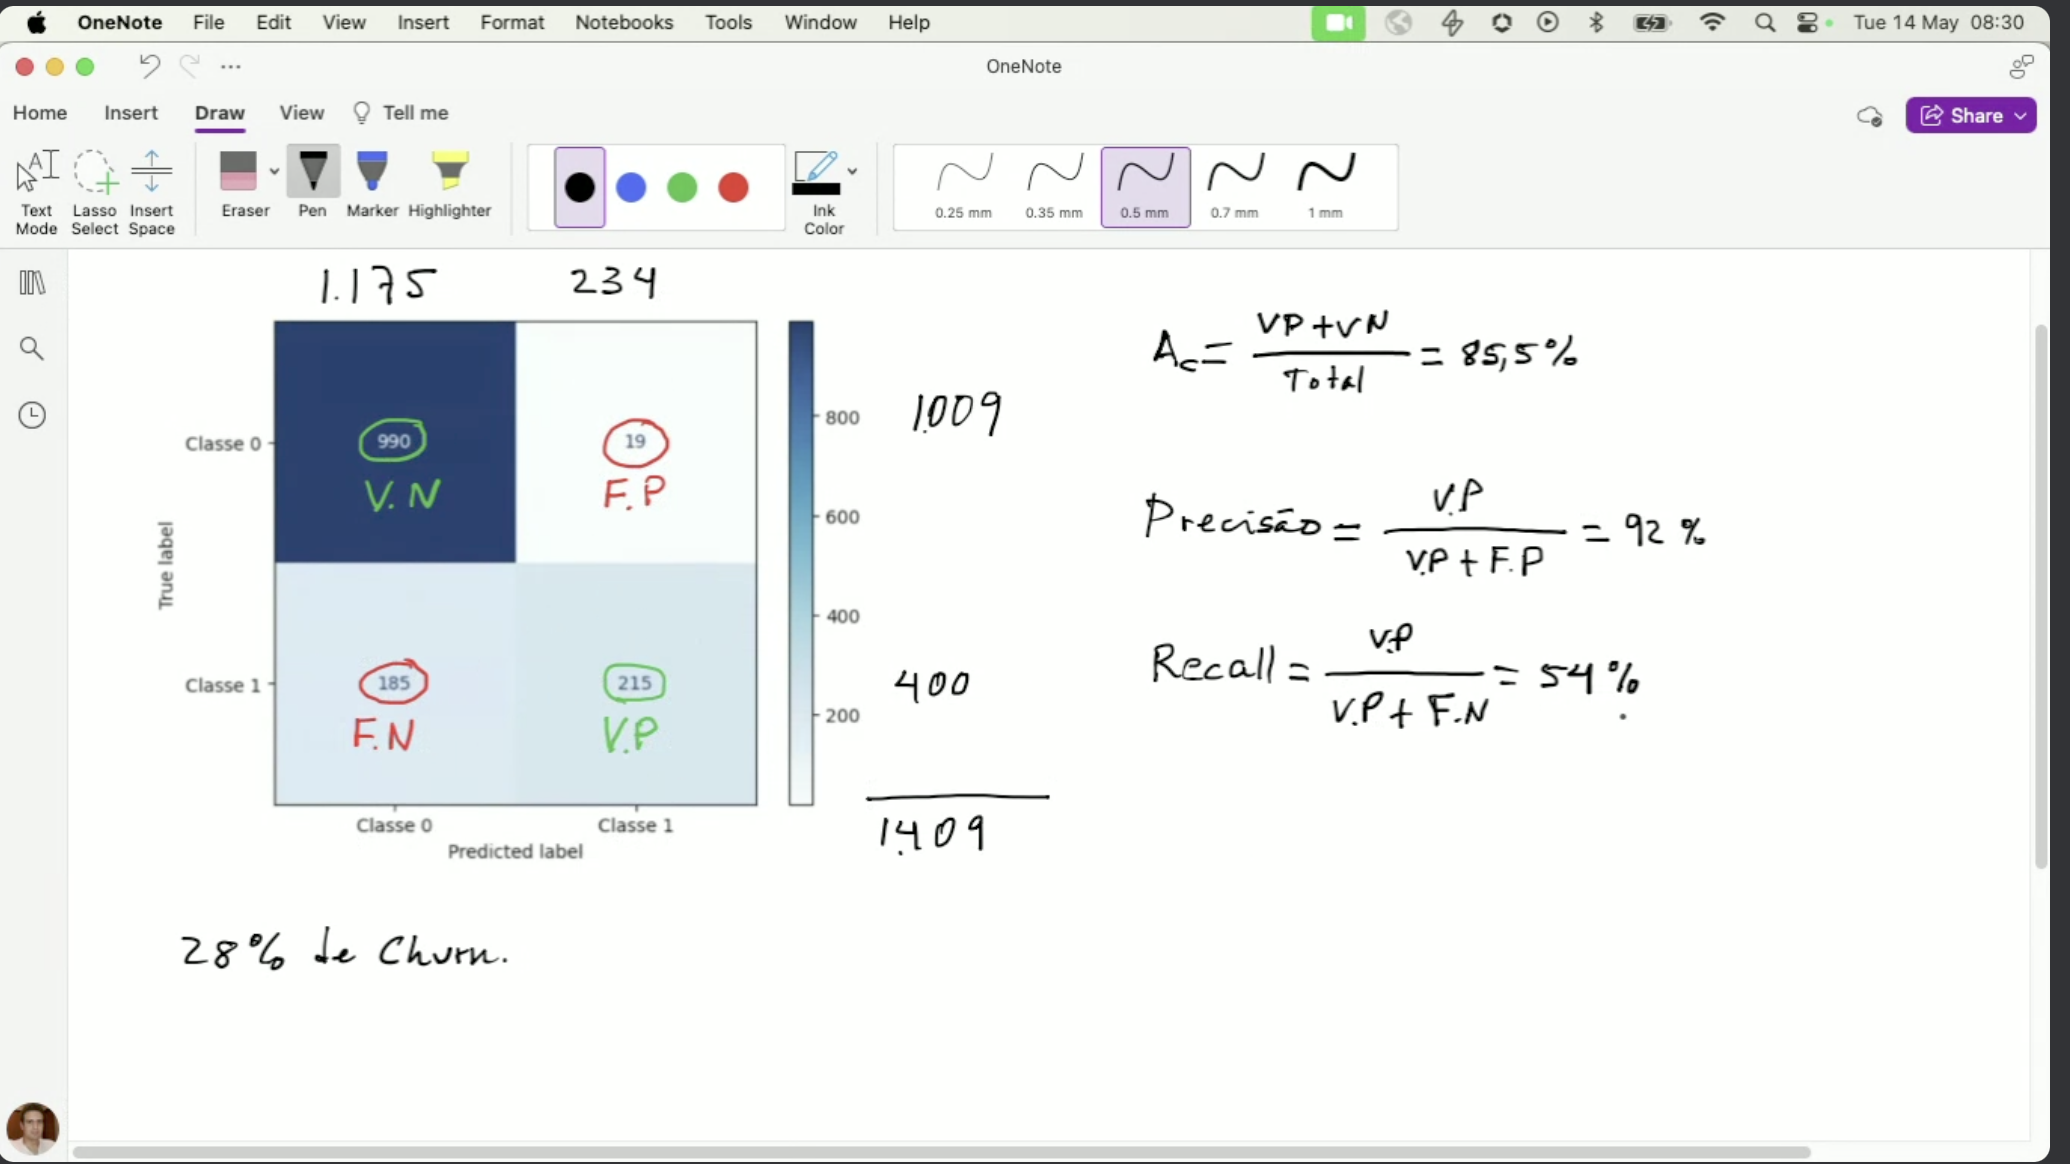 OneNote File Edit View Insert Format Notebooks Tools Window Help Tue 14 May 08:30
OneNote
Home Insert Draw View Tell me Share
Text Mode
Lasso Select
Insert Space
Eraser
Pen
Marker
Highlighter
Ink Color
0.25 mm
0.35 mm
0.5 mm
0.7 mm
1 mm
1.175 234
True label
Classe 0
990
V.N
19
F.P
Classe 1
185
F.N
215
V.P
Classe 0 Classe 1
Predicted label
800
600
400
200
1.009
400
1.409
Ac = VP + VN
Total
= 85,5%
Precisão = V.P
V.P + F.P
= 92 %
Recall = V.P
V.P + F.N
= 54 %
28% de Churn.